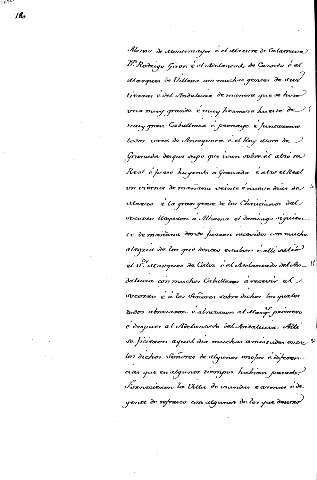 Alonso de Montemayor é el Alcaide de Calatrava
Dn. Rodrigo Giron é el Adelantado de Cazorla é el
Marques de Villena con muchas gentes de sus
tierras é del Andalucia de manera que se hizo
una muy grande é muy hermosa hueste de
muy gran Caballeria é peonage é juntaronse
todos cerca de Antequera é el Rey Moro de
Granada desque supo que iban sobre él alzó su
Real é fuese huyendo a Granada é alzó el Real
un viernes de mañana veinte é nueve dias de
Marzo é la gran gente de los Christianos del
socorro llegaron á Alhama el domingo siguien-
te de mañana donde fueron recevidos con mucha
alegria de los que dentro estaban é alli salió
el Marques de Cadiz é el Adelantado del An-
dalucia con muchos Caballeros á recevir el
socorro é á los Señores sobre dichos los quales
todos abrazaron é abrazaron al Marqs primero
é despues al Adelantado del Andalucia Alli
se ficieron aquel dia muchas amistades entre
los dichos Señores de algunos enojos é diferen-
cias que en algunos tiempos habian pasado.
Fornecieron la Villa de viandas é armas é de
gente de refresco con algunos de los que dentro